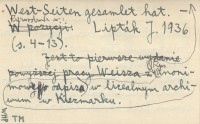 West-Seiten gesamlet hat. —
Rywodnik w:
W pozycji: Lipták J. 1936
(s. 4-13).
Jest to pierwsze wydanie
powyższej pracy Weisza z anoni-
mowego odpisu w licealnym archi-
wum w Kiezmarku.
TM